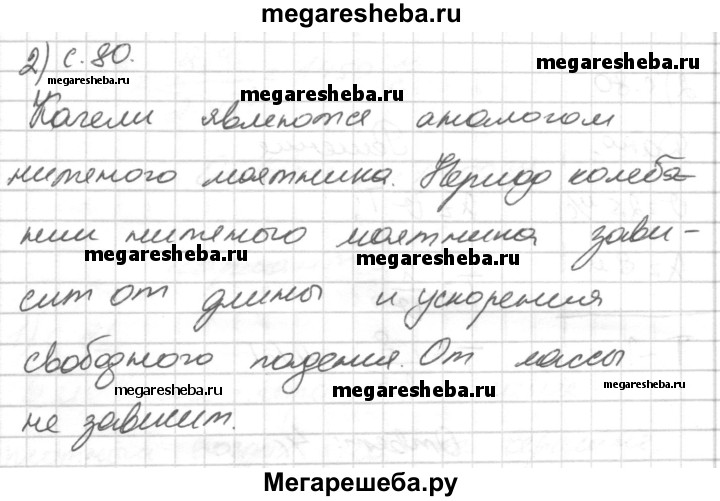 megaresheba.ru
2) с. 80.
megaresheba.ru
megaresheba.ru
megaresheba.ru
Качели являются аналогом
нитяного маятника. Период колеба-
ний нитяного маятника зави-
megaresheba.ru
megaresheba.ru
сит от длины и ускорения
свободного падения. От массы
megaresheba.ru
megaresheba.ru
megaresheba.ru
не зависит.
Мегарешеба.ру